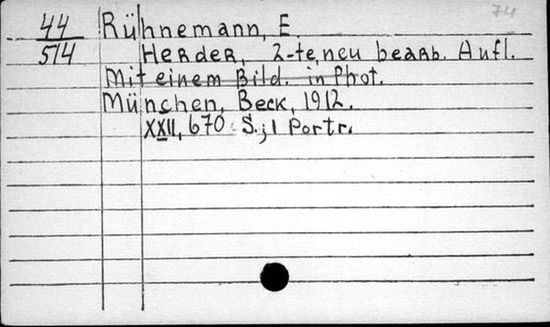 74
44 Rühnemann, E.
514 Herder, 2-te, neu bearb. Aufl.
Mit einem Bild. in Phot.
München, Beck, 1912.
XXII, 670 S.; 1 Portr.